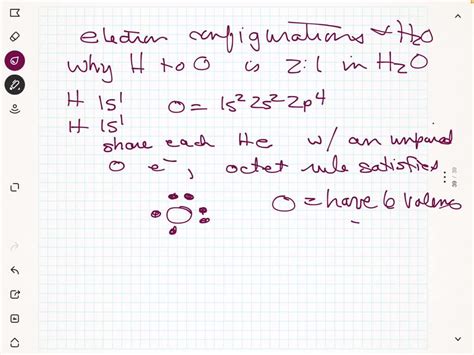 electron configurations & H2O
why H to O is 2:1 in H2O
H 1s¹ O = 1s² 2s² 2p⁴
H 1s¹
share each He w/ an unpaired
O e⁻, octet rule satisfies
O = have 6 valens